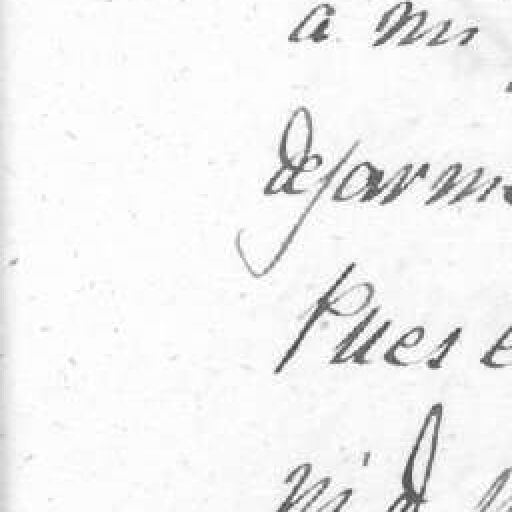 a mi
dejarme
Pues e
ni d